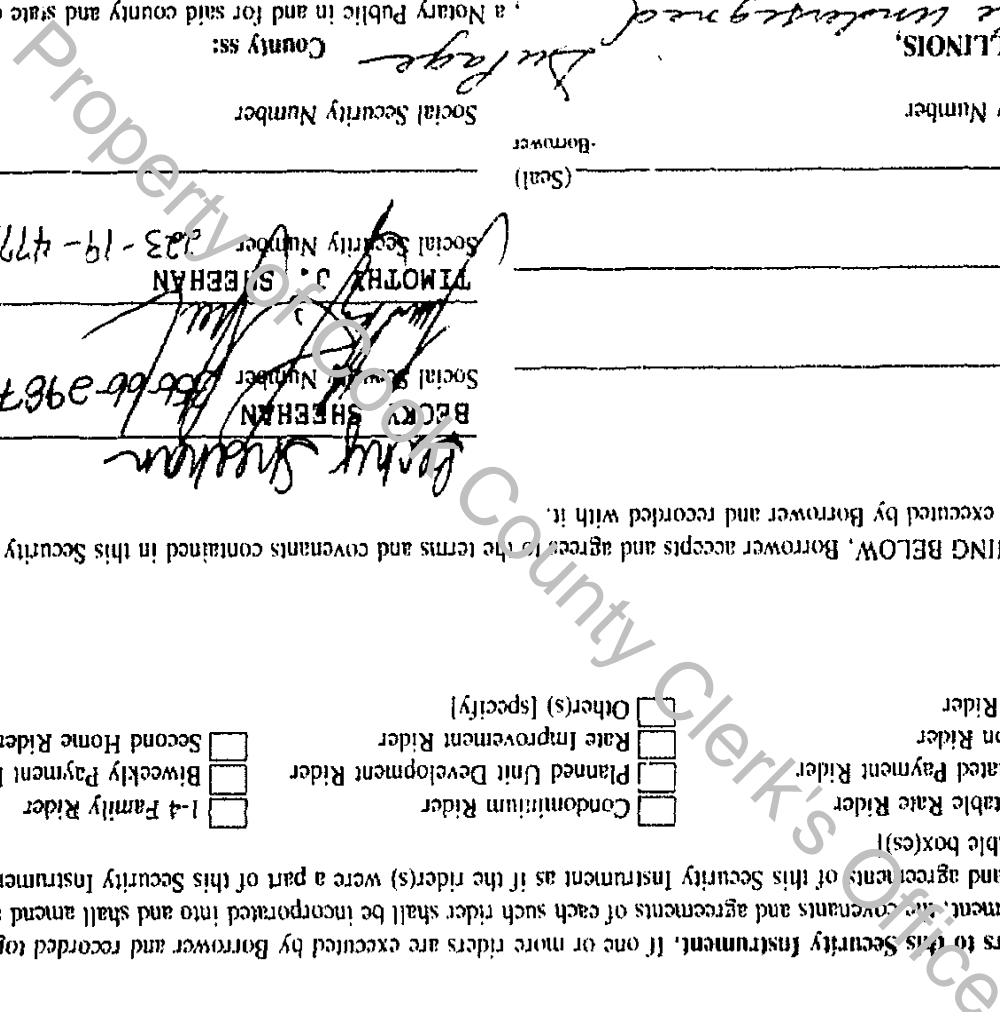 rs to this Security Instrument. If one or more riders are executed by Borrower and recorded tog
ment, the covenants and agreements of each such rider shall be incorporated into and shall amend
and agreements of this Security Instrument as if the rider(s) were a part of this Security Instrumen
ble box(es)]
table Rate Rider Condominium Rider 1-4 Family Rider
ated Payment Rider Planned Unit Development Rider Biweekly Payment
on Rider Rate Improvement Rider Second Home Rider
Rider Other(s) [specify]
ING BELOW, Borrower accepts and agrees to the terms and covenants contained in this Security
executed by Borrower and recorded with it.
Becky Sheehan
BECKY SHEEHAN
Social Security Number
TIMOTHY J. SHEEHAN
Social Security Number
(Seal)
-Borrower
Number Social Security Number
LLINOIS, DuPage County ss:
e undersigned , a Notary Public in and for said county and state
Property of Cook County Clerk's Office